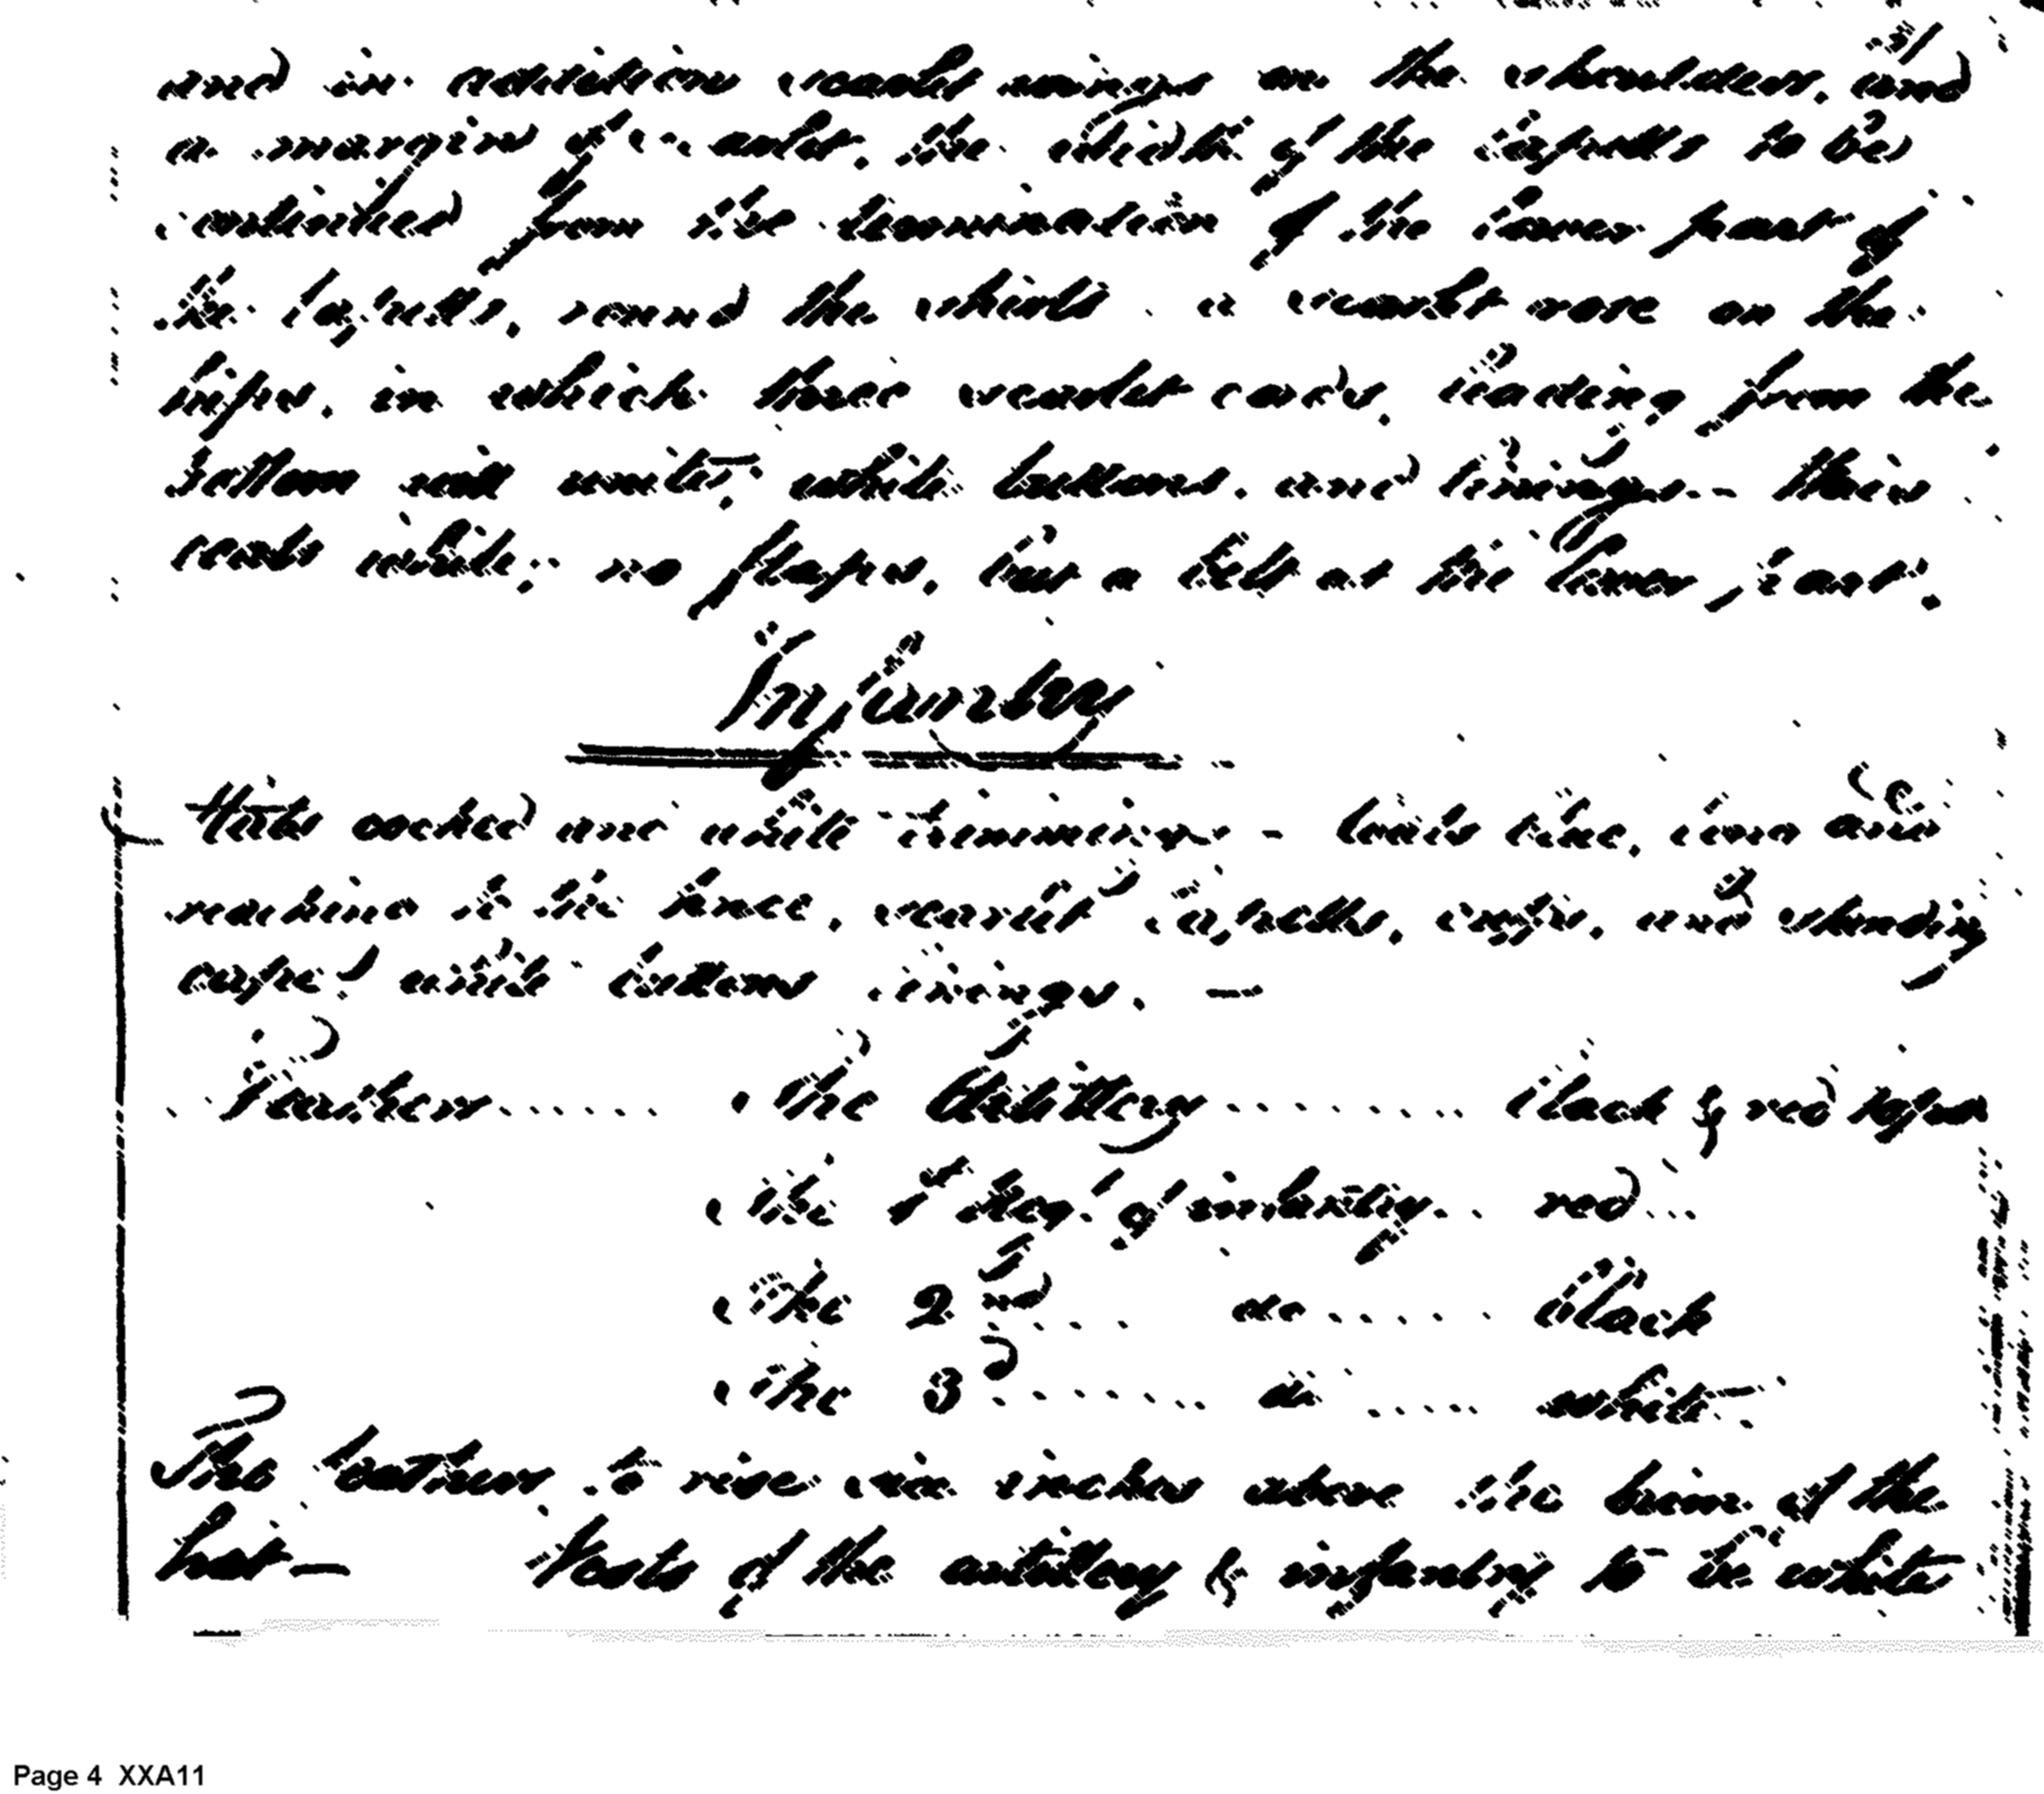 and in addition scarlet wings on the shoulders, and
a margin of scarlet, the width of the lapells to be
continued from the termination of the lower part of
the lapells, round the skirts. a scarlet rose on the
hips, in which three scarlet cords, leading from the
bottom will unite, white buttons, and linings - their
coats white; no flaps, but a belt at the lower part.
Infantry
Hats cocked and white trimmings - coats blue, and
reaching to the knee, scarlet lapells, cuffs, and standing
cape! white buttons linings. —
Feathers...... The Artillery........ black & red tops
The 1st Reg.t of infantry.. red...
The 2nd.... do...... Black
The 3d....... do .... white
The feathers to rise six inches above the brim of the
hat — Vests of the artillery & infantry to be white
Page 4 XXA11